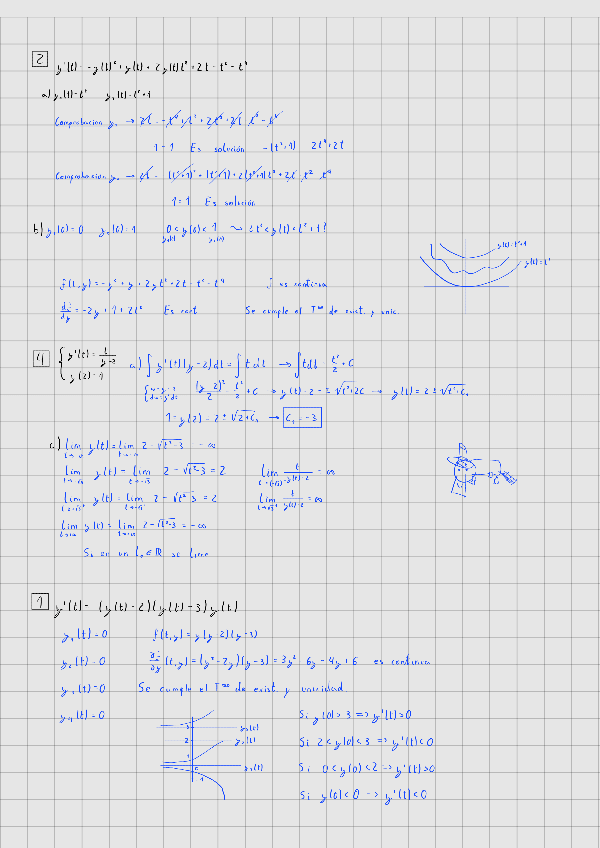 2 y'(t) = -y(t)² + y(t) + 2y(t)t² + 2t - t² - t⁴
a) y₁(t) = t² y₂(t) = t² + 1
Comprobación y₁ → 2t = -t⁴ + t² + 2t⁴ + 2t - t² - t⁴
1 = 1 Es solución -(t²+1) 2t⁴+2t
Comprobación y₂ → 2t = -(t²+1)² + (t²+1) + 2(t²+1)t² + 2t - t² - t⁴
1 = 1 Es solución
b) y₁(0) = 0 y₂(0) = 1 0 < y(0) < 1 ~> ¿ t² < y(t) < t²+1?
y₁(0) y₂(0)
y(t) = t²+1
y(t) = t²
f(t,y) = -y² + y + 2yt² + 2t - t² - t⁴ f es continua
df/dy = -2y + 1 + 2t² Es cont. Se cumple el Tᵐᵃ de exist. y unic.
4 { y'(t) = t/(y-2) y(2) = 1 a) ∫ y'(t)(y-2)dt = ∫ t dt → ∫ t dt = t²/2 + C
(y-2)²/2 = t²/2 + C → y(t)-2 = ±√(t²+2C) → y(t) = 2 ± √(t²+C₁)
1 = y(2) = 2 ± √(2+C₁) → C₁ = -3
lim y(t) = lim 2 - √(t²-3) = -∞
lim y(t) = lim 2 - √(t²-3) = 2 lim t/(y(t)-2) = ∞
lim y(t) = lim 2 - √(t²-3) = 2 lim t/(y(t)-2) = -∞
lim y(t) = lim 2 - √(t²-3) = -∞
Si en un t₀ ∈ ℝ se tiene
1 y'(t) = (y(t)-2)(y(t)-3)y(t)
y₁(t) = 0 f(t,y) = y(y-2)(y-3)
y₂(t) = 0 df/dy (t,y) = (y²-2y)(y-3) = 3y² - 6y - 4y + 6 es continua
y₃(t) = 0 Se cumple el Tᵐᵃ de exist. y unicidad.
y₄(t) = 0
Si y(0) > 3 => y'(t) > 0
Si 2 < y(0) < 3 => y'(t) < 0
Si 0 < y(0) < 2 => y'(t) > 0
Si y(0) < 0 => y'(t) < 0